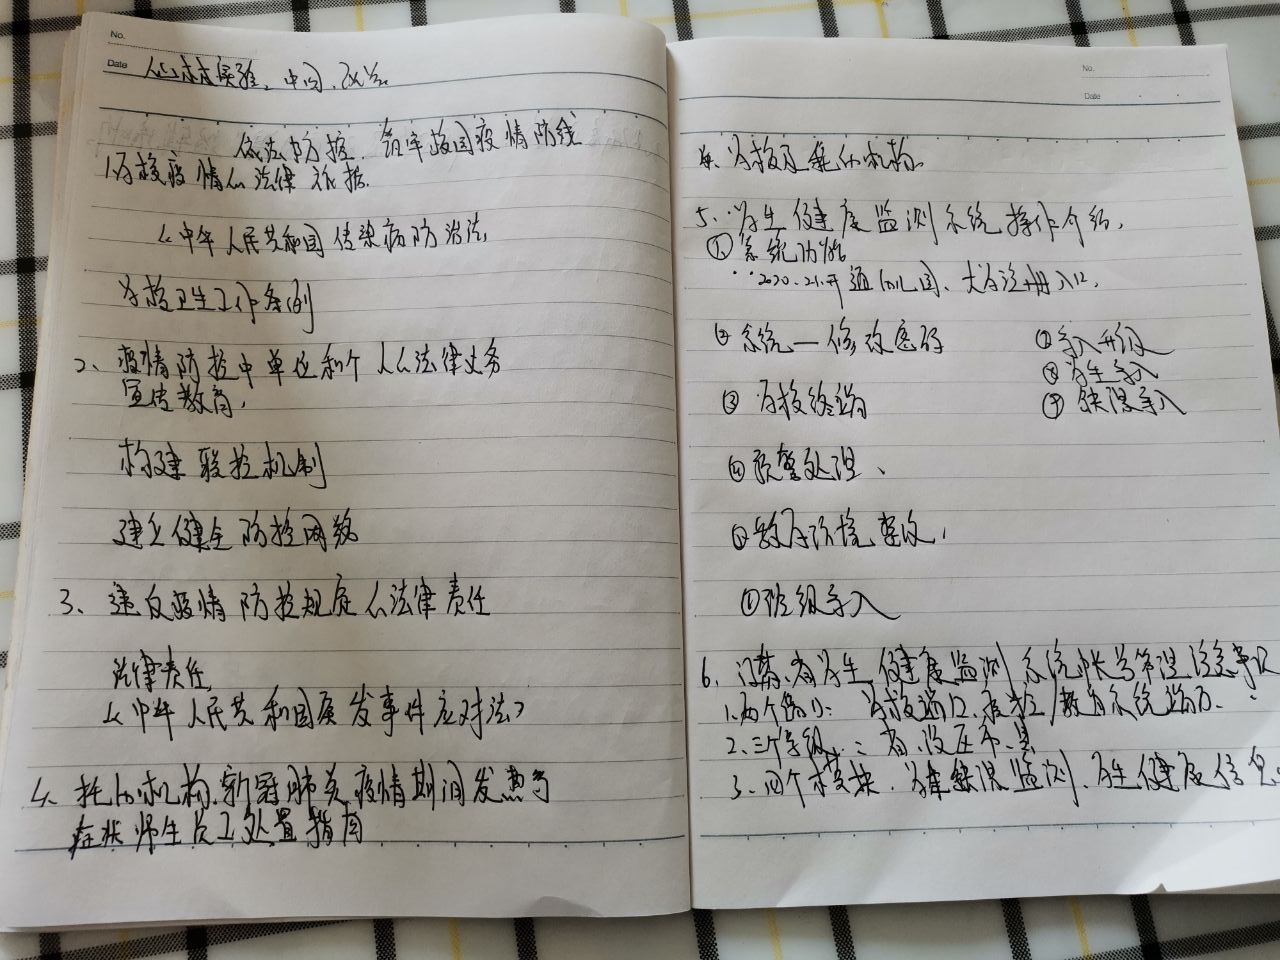 No.
Date
依法防控 筑牢校园疫情防线
1. 学校疫情的法律依据
《中华人民共和国传染病防治法》
学校卫生工作条例
2、疫情防控中单位和个人的法律义务
宣传教育,
构建联控机制
建立健全防控网络
3、违反疫情防控规定的法律责任
法律责任
《中华人民共和国突发事件应对法》
4、托幼机构新冠肺炎疫情期间发热等
症状师生员工处置指南
No.
Date
学校及托幼机构
5、学生健康监测系统操作介绍,
① 系统功能
开通幼儿园、大学注册入口,
② 系统—修改密码
⑦ 导入升级
③ 学校终端
⑧ 学生导入
⑨ 缺课导入
④ 预警处理、
⑥ 班级导入
6、学生健康监测系统账号管理注意事项
1、两个端口: 学校端口,疾控/教育系统端口.
2、三个等级: 省、设区市、县
3、四个模块. 缺课监测、学生健康信息